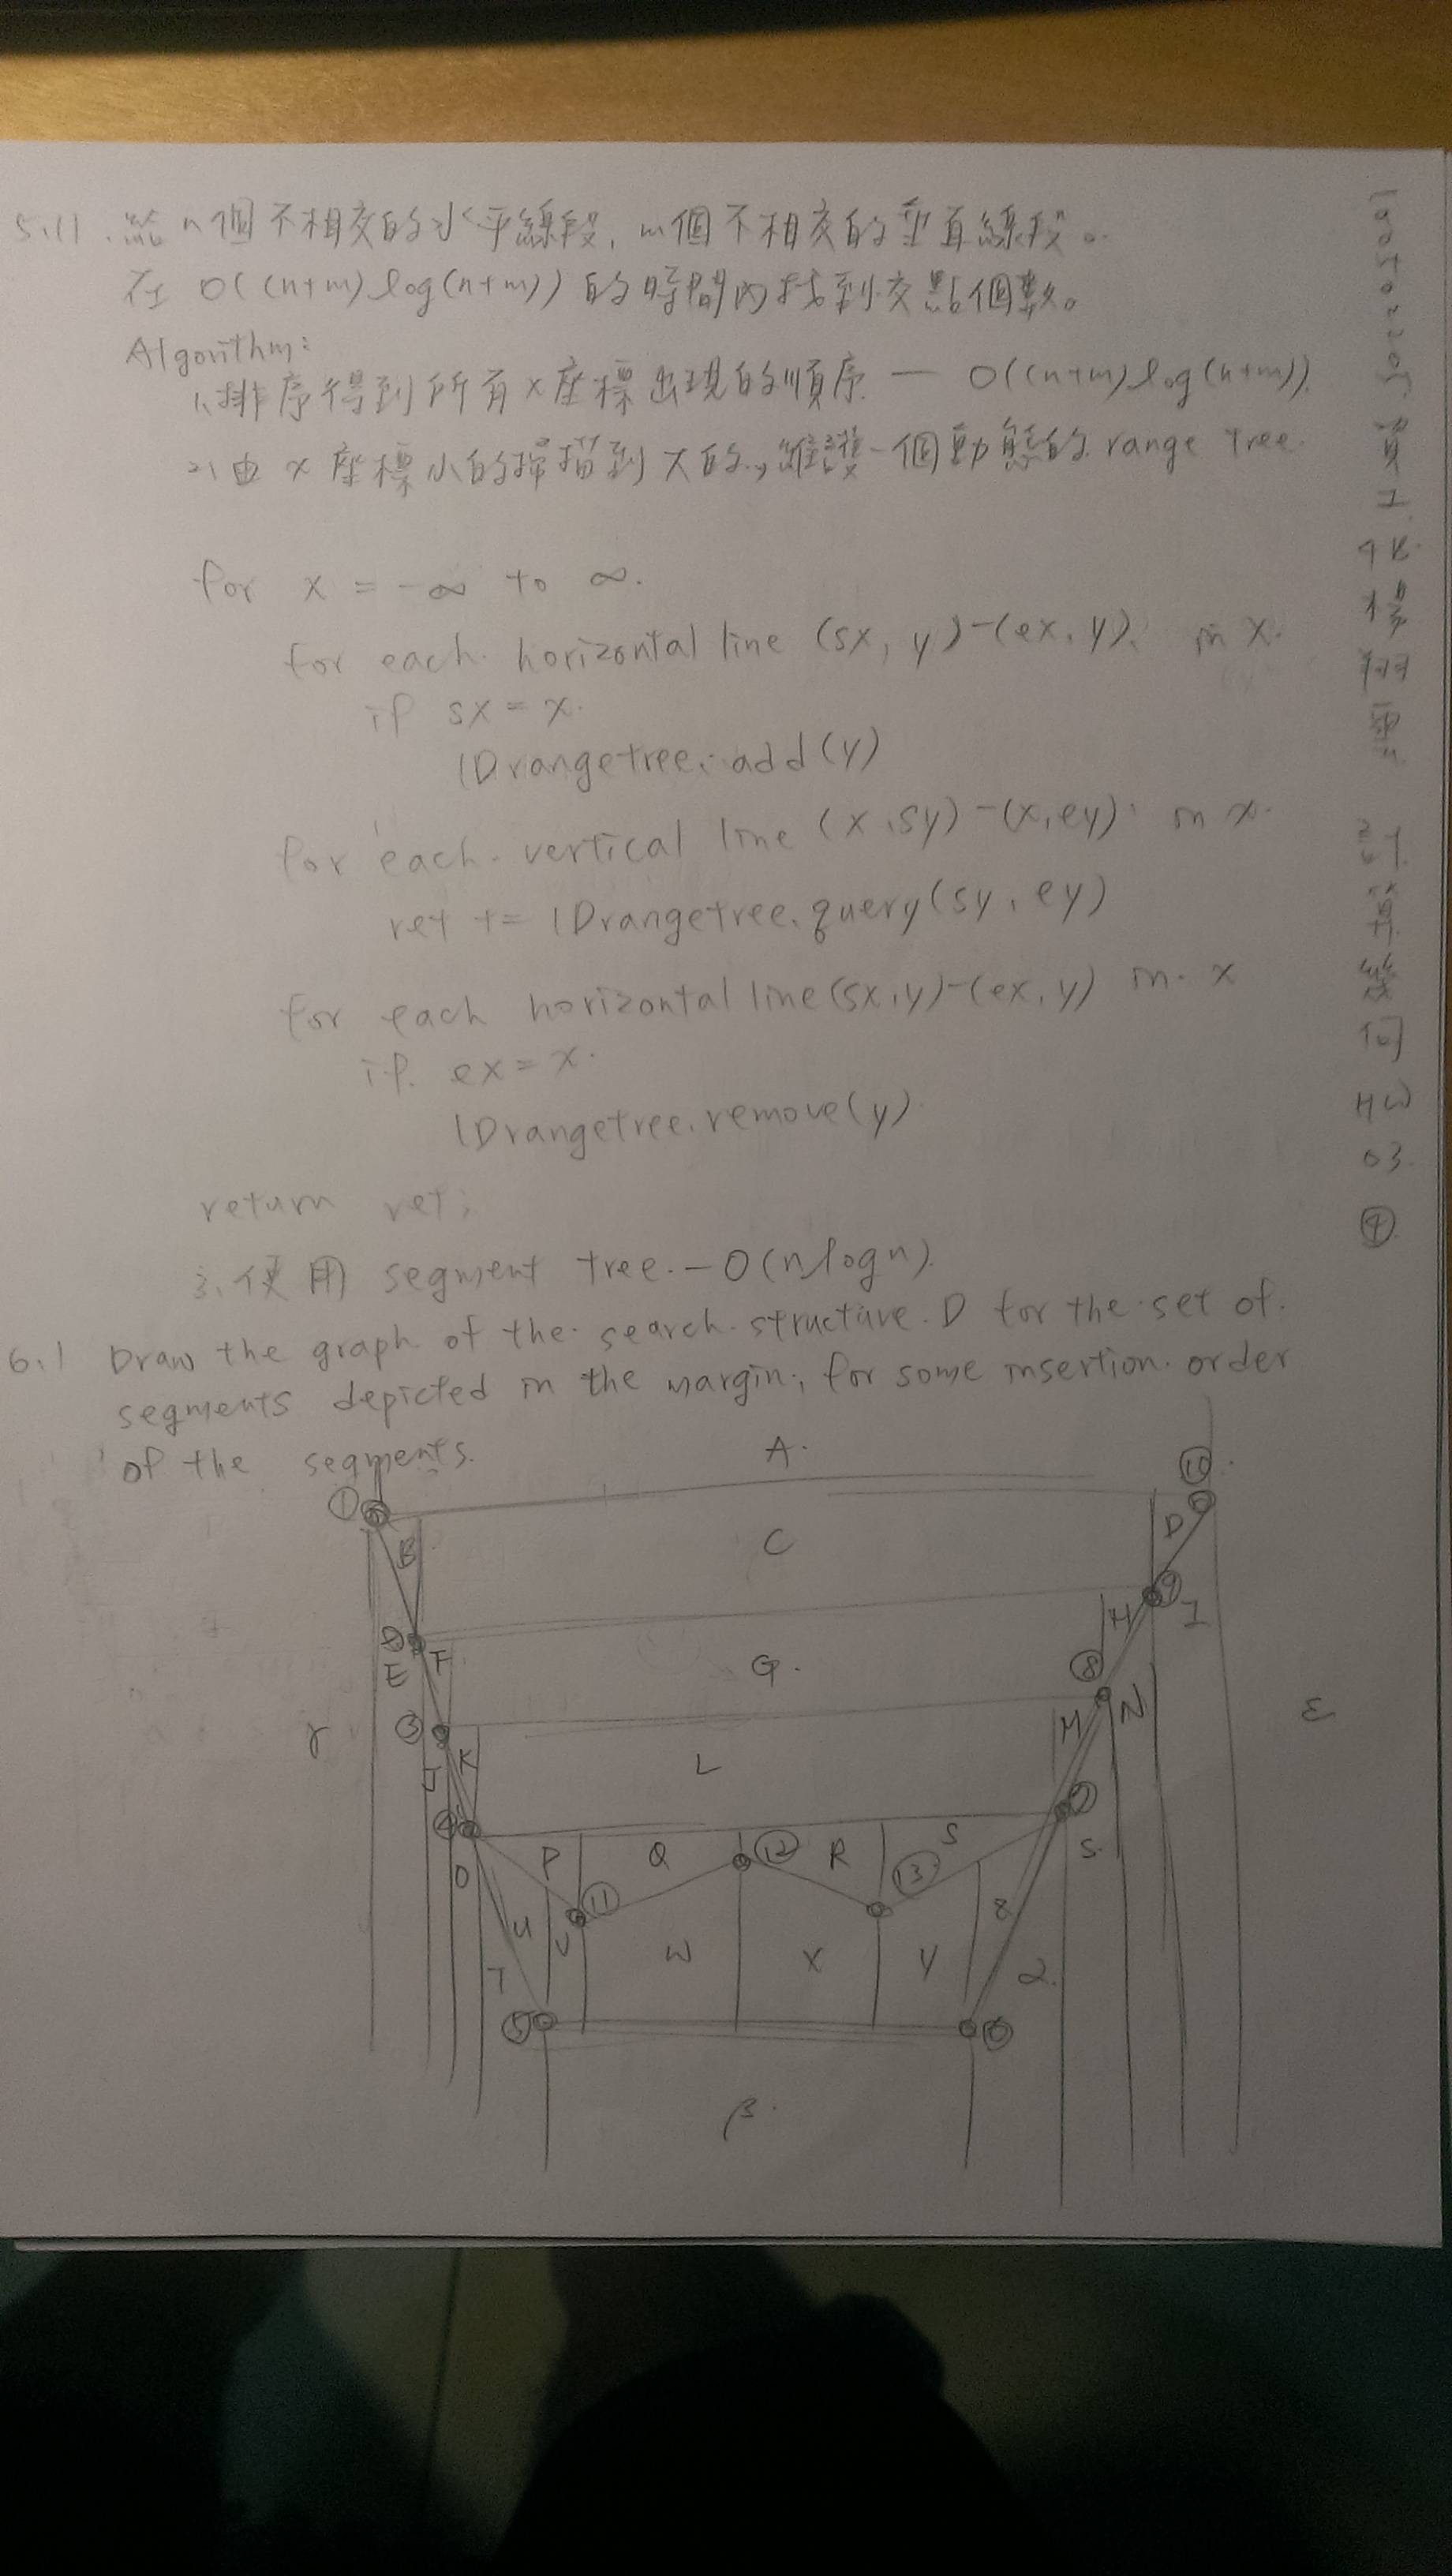 5.11. 給 n個不相交的水平線段, m個不相交的垂直線段。
在 O((n+m) log(n+m)) 的時間內找到交點個數。
Algorithm:
1. 排序得到所有 x座標出現的順序 — O((n+m) log(n+m)).
2. 由 x 座標小的掃描到大的, 維護一個動態的 range tree.
for x = -∞ to ∞.
for each horizontal line (sx, y)-(ex, y) in x.
if sx = x.
1Drangetree.add(y)
for each vertical line (x, sy)-(x, ey) in x.
ret += 1Drangetree.query(sy, ey)
for each horizontal line (sx, y)-(ex, y) in x
if ex = x.
1Drangetree.remove(y)
return ret;
3. 使用 segment tree. - O(n log n).
6.1 Draw the graph of the search structure D for the set of
segments depicted in the margin, for some insertion order
of the segments.
A.
① ⑩
B C D
② ⑨
E F G. H I
③ ⑧
γ J K L M N ε
④ ⑦
O P Q ⑫ R ⑬ S S
⑪
T U V W X Y Z α
⑤ ⑥
β.
計算幾何
HW
03.
④